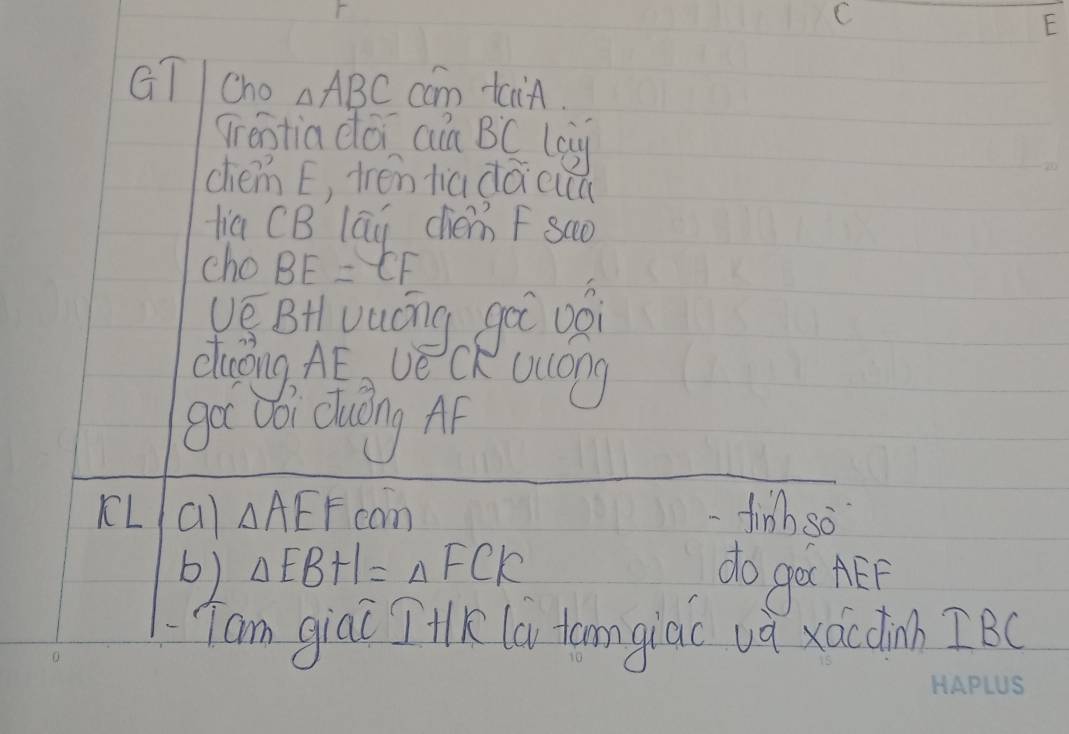 F C E
GT Cho △ABC cân tại A.
Trên tia đối của BC lấy
điểm E, trên tia đối của
tia CB lấy điểm F sao
cho BE = CF
Vẽ BH vuông góc với
đường AE, vẽ CK vuông
góc với đường AF
KL a) △AEF cân - tính số
b) △EBH = △FCK đo góc AEF
- Tam giác IHK là tam giác và xác định IBC
0 10 15 20
HAPLUS